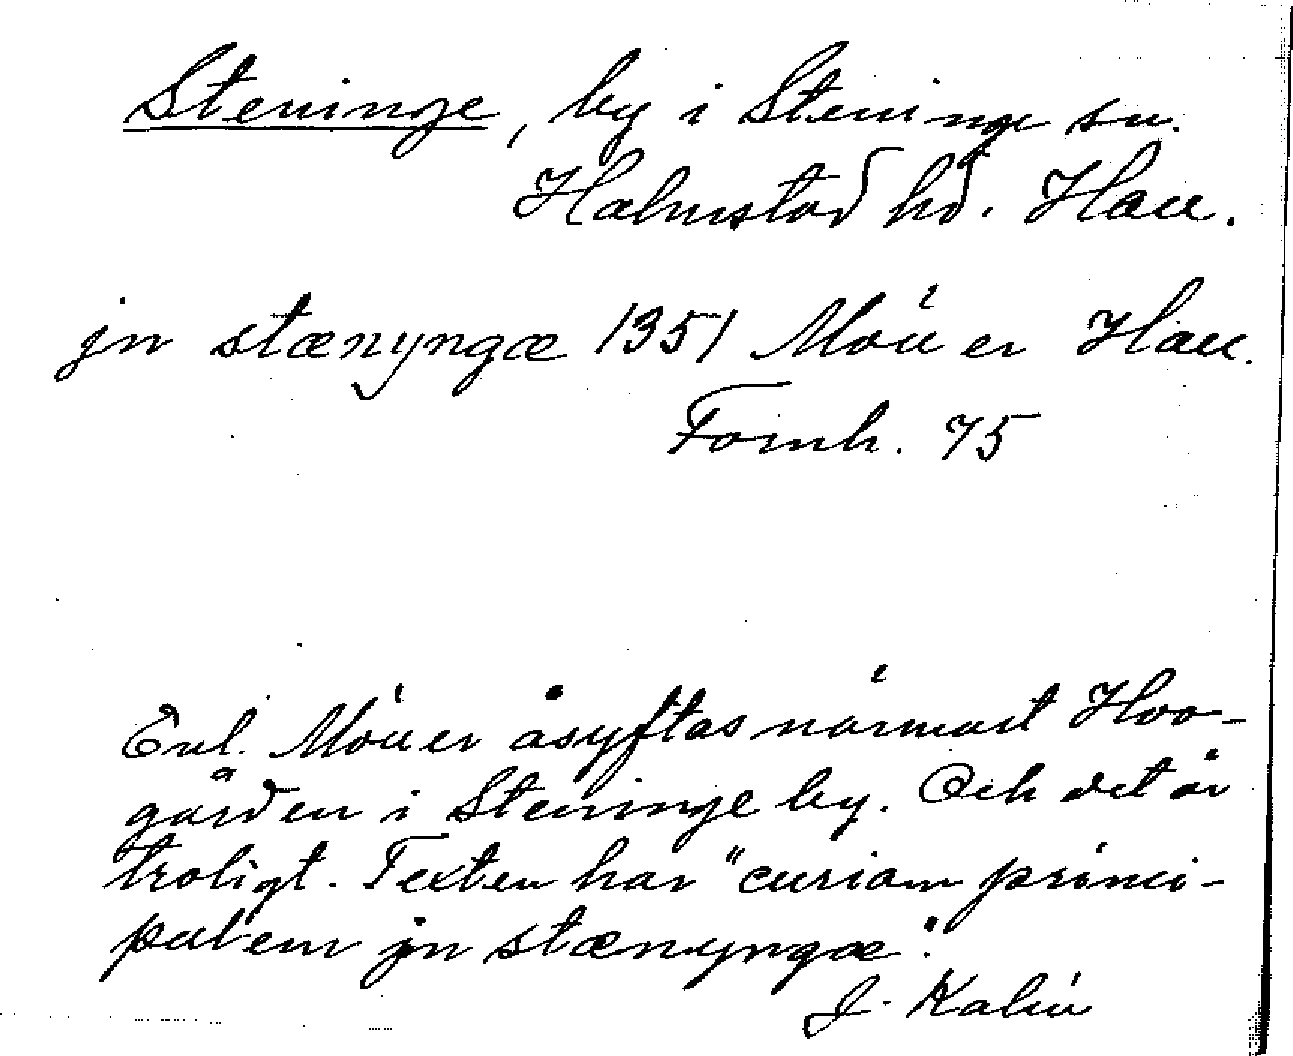 Steninge, by i Steninge sn.
Halmstad hd. Hall.
jn stænyngæ 1351 Möller Hall.
Fornh. 75
Enl. Möller åsyftas närmast Hov-
gården i Steninge by. Och det är
troligt. Texten har "curiam princi-
palem jn stænyngæ".
J. Kalén